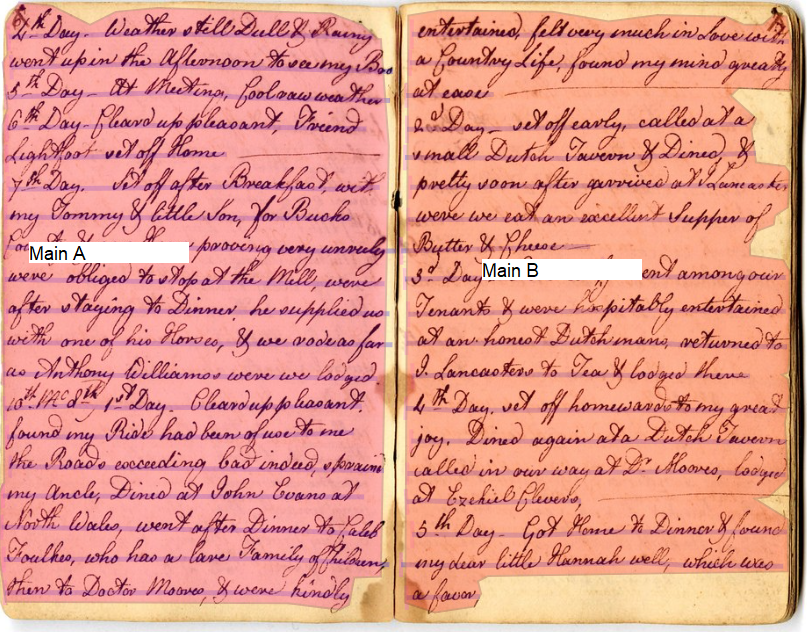 4th Day. Weather still Dull & Rainy
went up in the Afternoon to see my Bro
5th Day - At Meeting, Cool raw weather
6th Day - Cleard up pleasant, Friend
Lightfoot set off Home
7th Day. Set off after Breakfast, with
my Tommy & little Son, for Bucks
Main A
proving very unruly
were obliged to stop at the Mill, were
after staying to Dinner, he supplied us
with one of his Horses, & we rode as far
as Anthony Williamss were we lodged.
10th Mo 8th 1st Day - Cleard up pleasant.
found my Ride had been of use to me
the Roads exceeding bad indeed, spraind
my Ancle, Dined at John Evans at
North Wales, went after Dinner to Caleb
Foulkes, who has a lare Family of Children,
then to Doctor Moores, & were kindly
entertained, felt very much in Love with
a Country Life, found my mind greatly
at ease
2d Day - set off early, called at a
small Dutch Tavern & Dined, &
pretty soon after arrived at I Lancaster
were we eat an excellent Supper of
Butter & Cheese
3d Day
Main B
ent among our
Tenants & were hospitably entertained
at an honest Dutch mans, returned to
I. Lancasters to Tea & lodged there
4th Day, set off homewards to my great
joy. Dined again at a Dutch Tavern
called in our way at Dr. Moores, lodged
at Ezekiel Clevers,
5th Day - Got Home to Dinner & found
my dear little Hannah well, which was
a favor